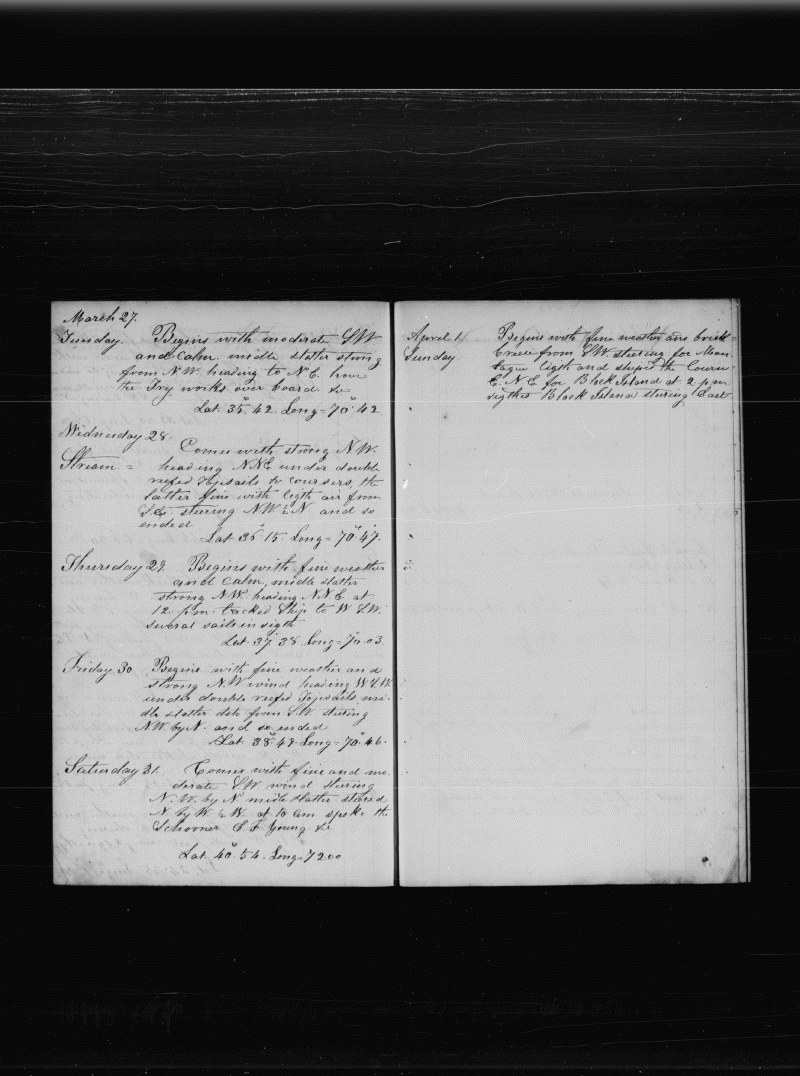 March 27.
Tuesday. Begins with moderate S.W
and calm. midle & latter strong
from N.W. heading to N.E. hove
the Try works over board. &c
Lat. 35°. 42 Long = 70°. 42
Wednesday 28.
Comes with strong N.W.
Stream = heading N.N.E. under double
reefed Topsails & coursers, the
latter fine with ligth air from
S.E. steering NW ½ N and so
ended
Lat 36°. 15. Long = 70°. 47.
Thursday 29. Begins with fine weather
and calm, midle & latter
strong N.W. heading N.N.E. at
12. p.m. tacked Ship to W.S.W.
several sails in sigth
Lat. 37°. 38 Long = 70°. 03.
Friday 30 Begins with fine weather and
strong N.W wind heading W.S.W.
under double reefed Topsails, mi-
dle & latter dito from S.W steering
N.W. by N. and so ended
Lat. 38°. 48. Long = 70°. 46.
Saturday 31. Comes with fine and mo-
derate S.W wind steering
N.W. by N midle & latter steared
N. by W. ½ W. at 10 am spoke the
Schooner S. F. Young. &c
Lat. 40°. 54. Long = 72.00
April 1 Begins with fine weather and brisk
Sunday. breeze from S.W steering for Mon-
tague ligth and the Course
E. N. E. for Block Island at 2 p.m.
sigthed Block Island steering East